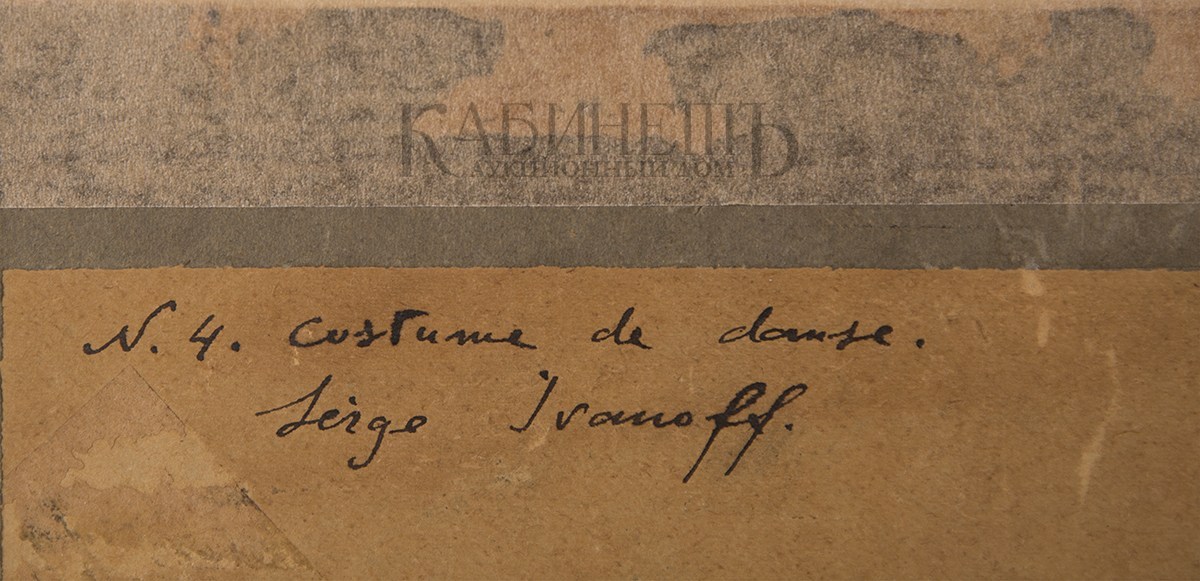 КАБИНЕТЪ
АУКЦИОННЫЙ ДОМ
N. 4. Costume de danse.
Serge Ivanoff.